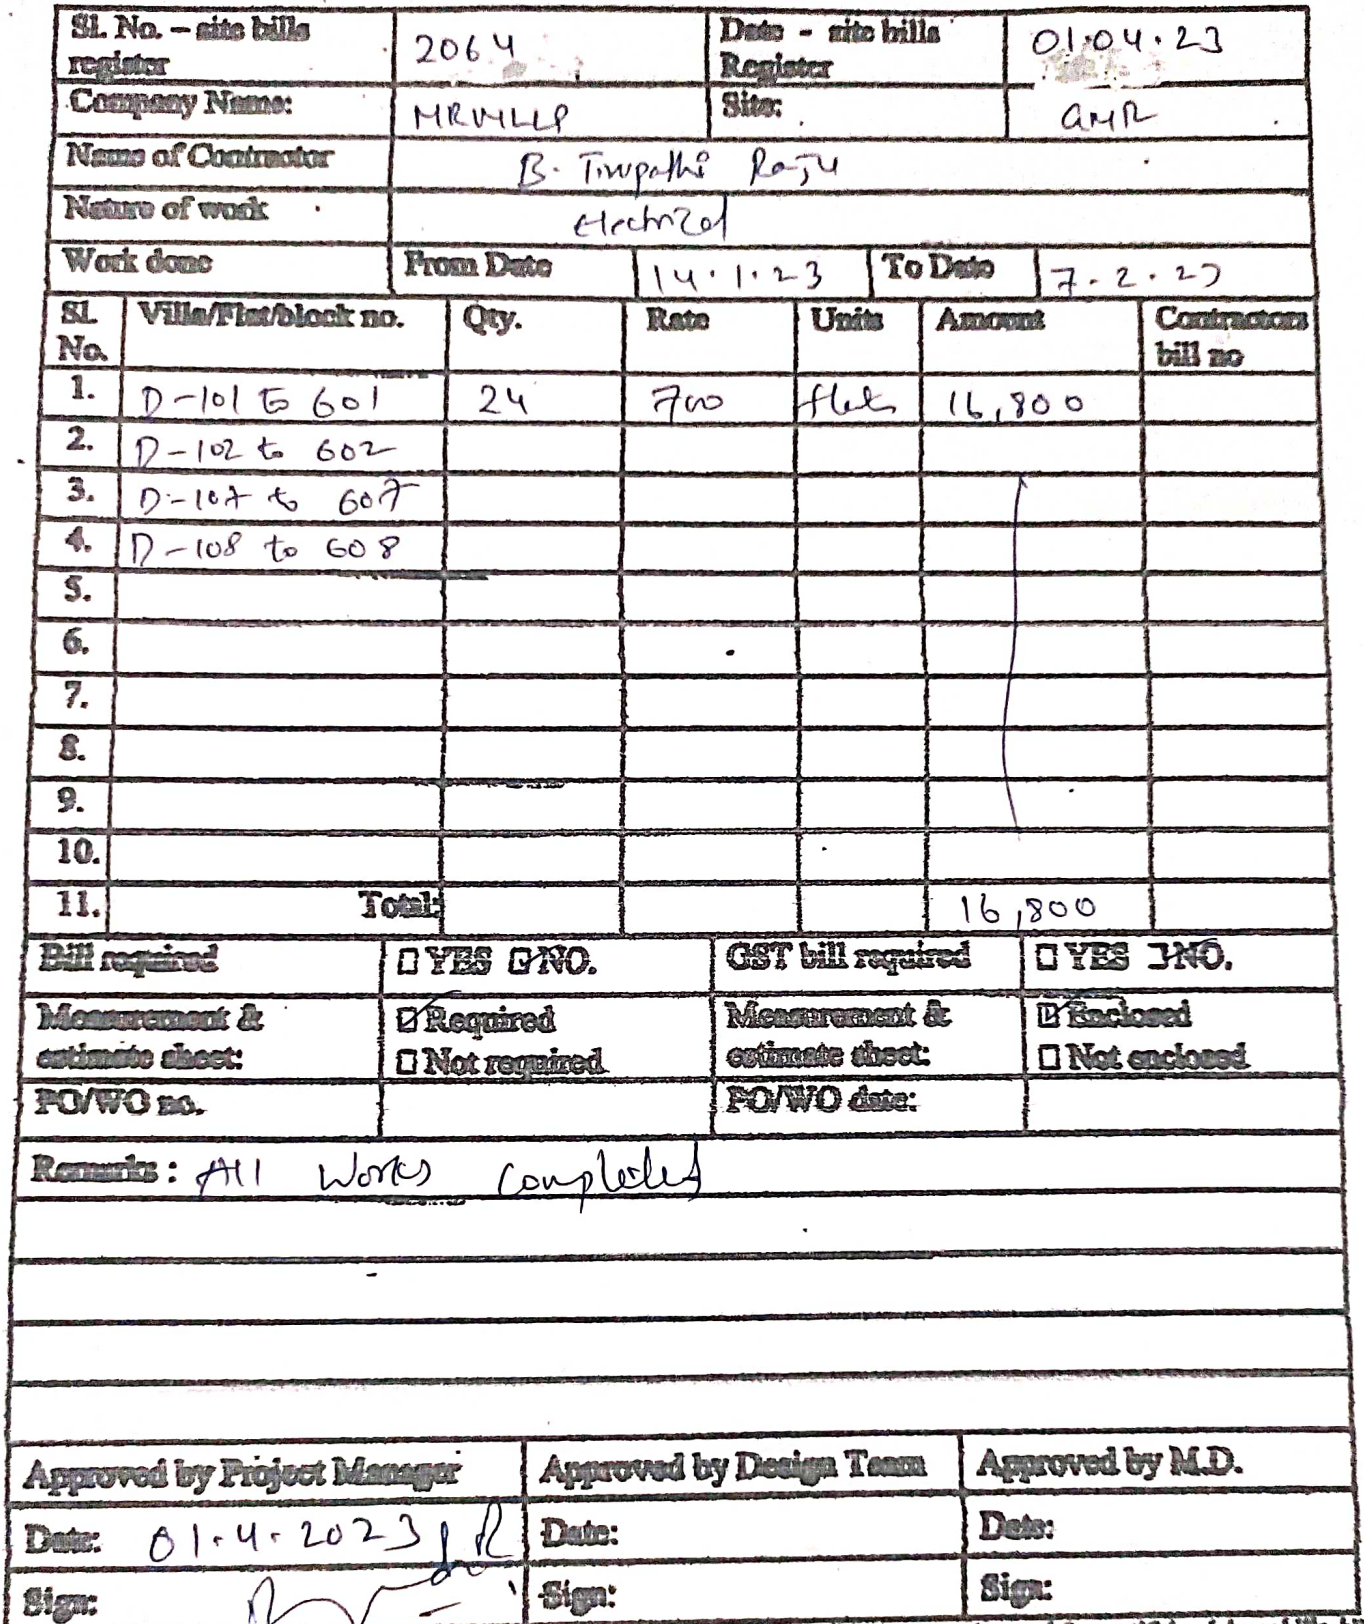 Sl. No. – site bills register 2064 Date - site bills Register 01.04.23
Company Name: MRMLLP Site: GMR
Name of Contractor B. Tirupathi Raju
Nature of work Electrical
Work done From Date 14.1.23 To Date 7.2.23
Sl. No. Villa/Flat/block no. Qty. Rate Units Amount Contractors bill no
1. D-101 to 601 24 700 flats 16,800
2. D-102 to 602
3. D-107 to 607
4. D-108 to 608
5.
6.
7.
8.
9.
10.
11. Total: 16,800
Bill required ☐ YES ☑ NO. GST bill required ☐ YES ☑ NO.
Measurement & estimate sheet: ☑ Required ☐ Not required Measurement & estimate sheet: ☑ Enclosed ☐ Not enclosed
PO/WO no. PO/WO date:
Remarks : All works completed
Approved by Project Manager Approved by Design Team Approved by M.D.
Date: 01.4.2023 Date: Date:
Sign: Sign: Sign: